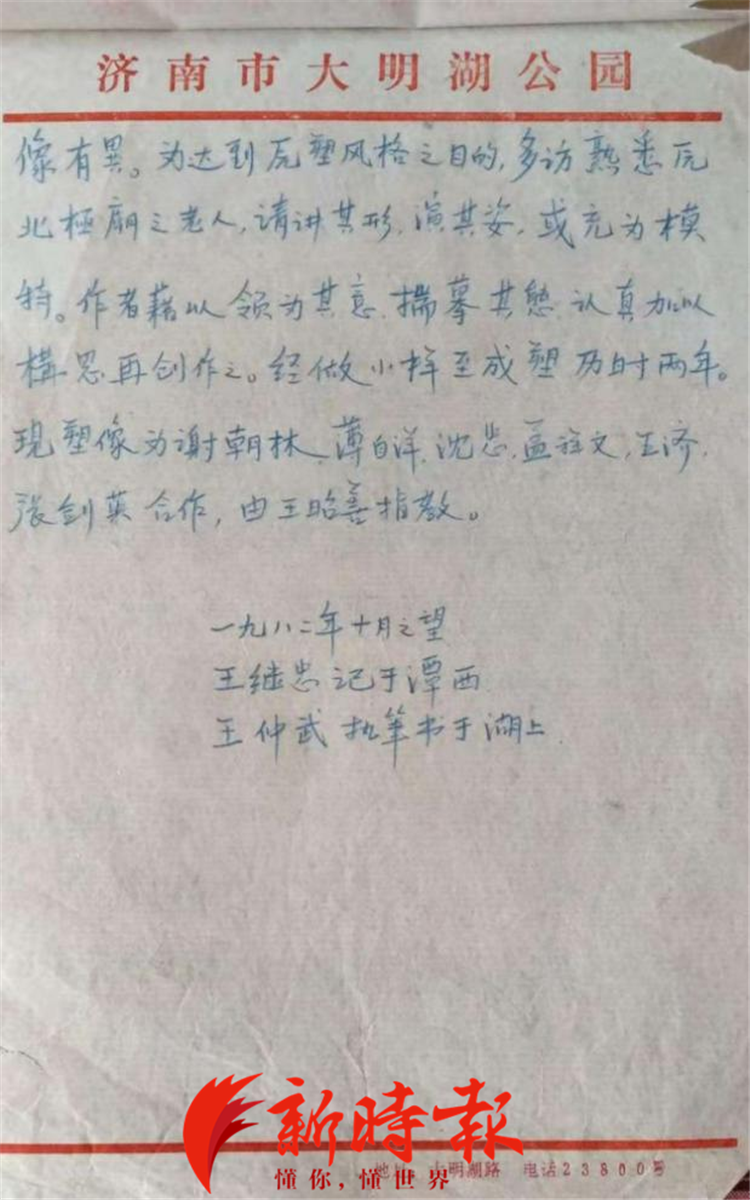 济南市大明湖公园
像有異。为达到原塑风格之目的,多访熟悉原
北極廟之老人,请讲其形、演其姿,或充为模
特。作者藉以领为其意、揣摹其態、认真加以
構思再创作之。经做小样至成塑历时两年。
现塑像为谢朝林、薄自洋、沈忠、孟 文,王济、
张剑英合作,由王昭善指教。
一九八二年十月之望
王继忠记于潭西
王仲武执筆书于湖上
新時報
懂你,懂世界
大明湖路 电话23800号